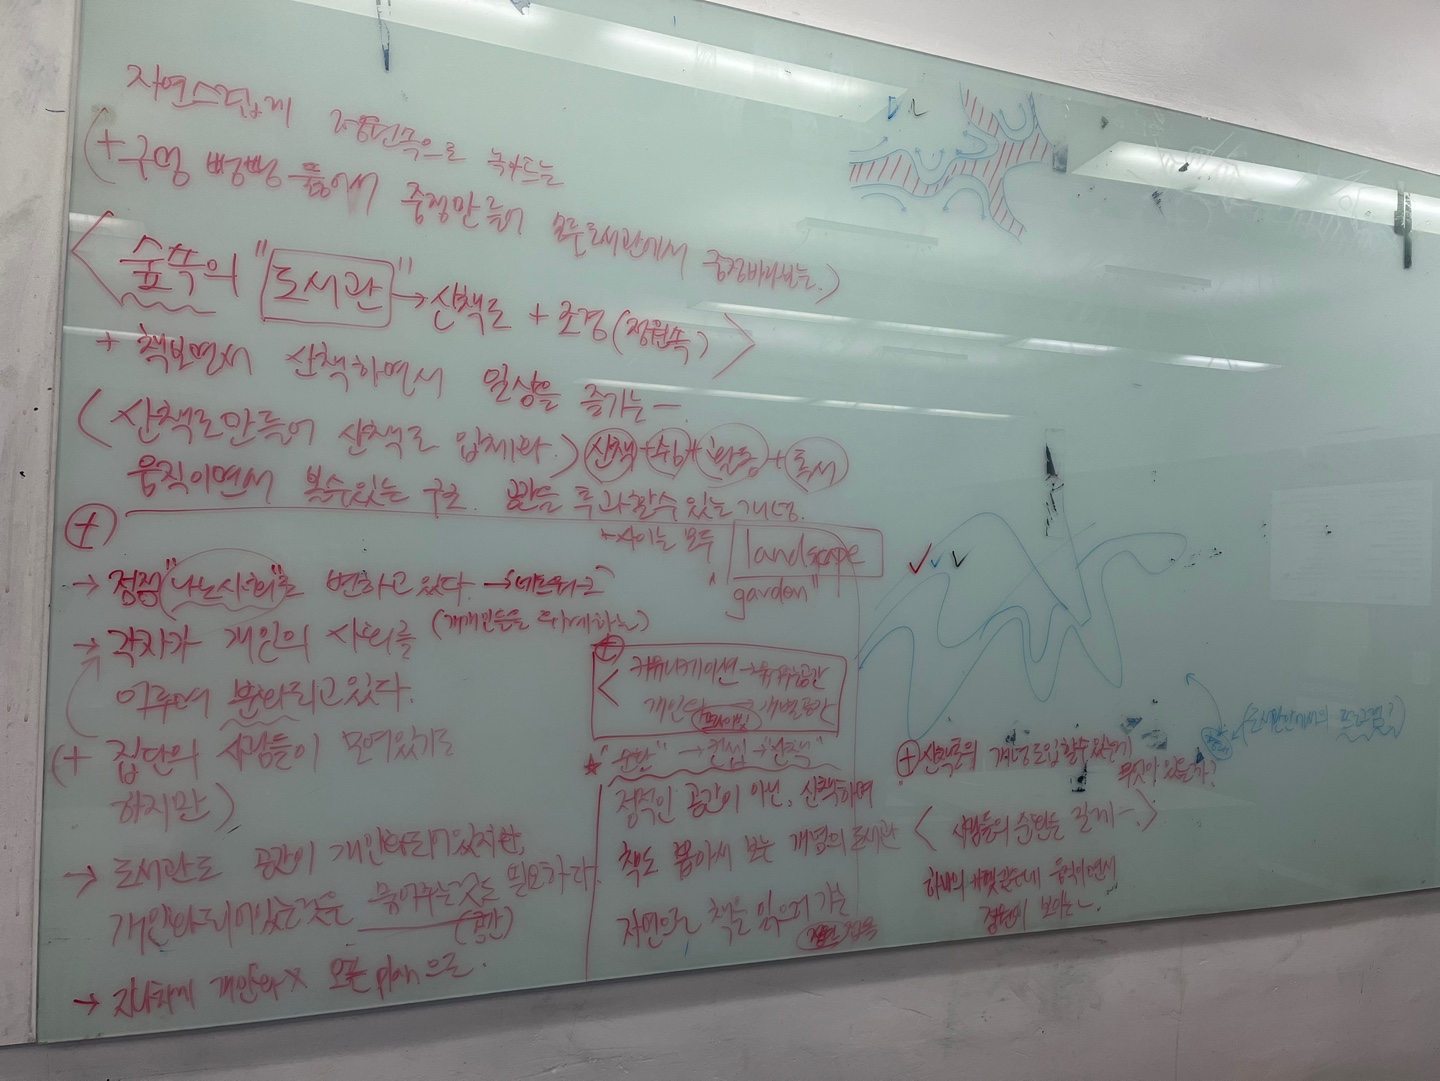 자연스럽게 정원속으로 녹아드는
(+ 구멍 뻥뻥 뚫어서 중정만들어 모든도서관에서 중정바라보는.)
< 숲속의 "도서관" → 산책로 + 조경 (정원속) >
+ 책보면서 산책하면서 일상을 즐기는 —
(산책로만들어 산책로 입체화.) 산책 + 쉼 + 활동 + 독서
움직이면서 볼수있는 구조. 공간을 투과할수있는 개념.
+
→ 점점 "나노사회"로 변하고 있다. → 네트워크
(개개인들을 위해하는)
→ 각자가 개인의 사회를
이루며 분화되고있다.
(+ 집단의 사람들이 모여있기도
하지만)
→ 도서관도 공간이 개인화되어있지만,
개인화되어있는것을 묶어주는것도 필요하다.
(공간)
→ 지나치게 개인화 X 오픈 plan으로.
+ 사이는 모두 "landscape
garden"
+
< 커뮤니케이션 → 공유공간
개인화 → 개별공간
★ "순환" → 컨셉 → "산책"
정적인 공간이 아닌, 산책하며
책도 뽑아서 보는 개념의 도서관
자연으로 책을 읽으러 가는
+ 산책로의 개념 도입할수있는게
무엇이 있을까?
< 사람들의 순환을 길게 —. >
하나의 개념같은데 움직이면서
정원이 보이는 —.